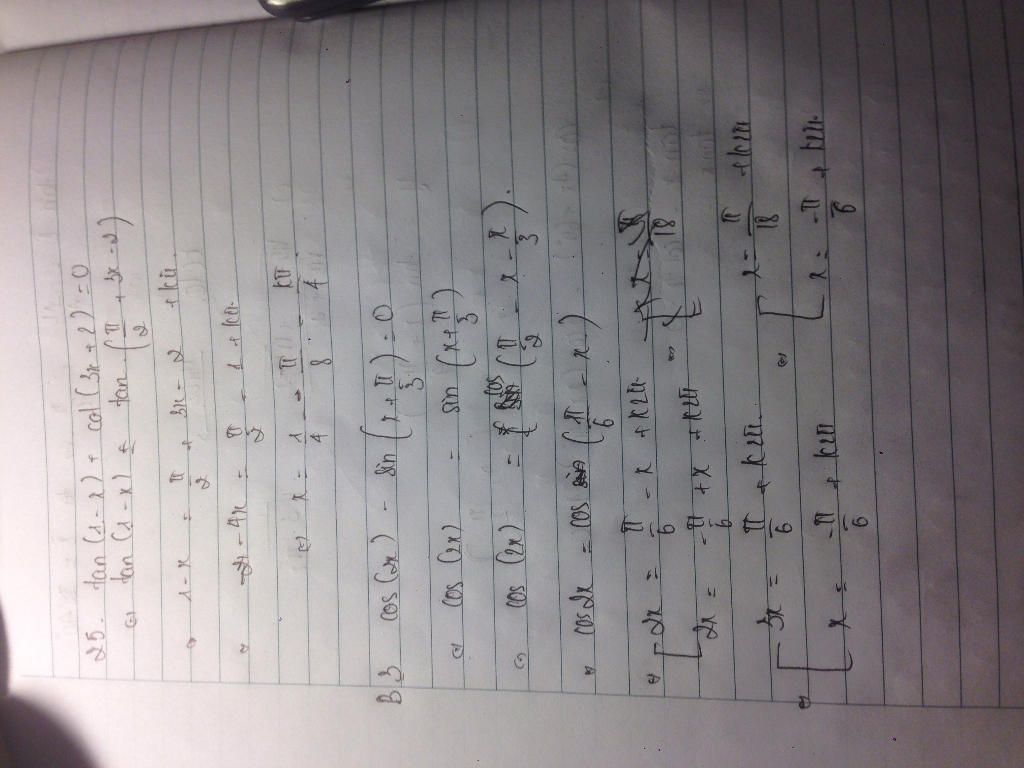 25. tan(1-x) + cot(3x+2) = 0
⇔ tan(1-x) = tan(π/2 + 3x - 2)
⇔ 1-x = π/2 + 3x - 2 + kπ
⇔ -4x = π/2 - 1 + kπ
⇔ x = 1/4 - π/8 - kπ/4
B3 cos(2x) - sin(x + π/3) = 0
⇔ cos(2x) = sin(x + π/3)
⇔ cos(2x) = cos(π/2 - x - π/3)
⇔ cos2x = cos(π/6 - x)
⇔ [ 2x = π/6 - x + k2π
2x = -π/6 + x + k2π
⇔ [ 3x = π/6 + k2π ⇔ [ x = π/18 + k2π
x = -π/6 + k2π x = -π/6 + k2π